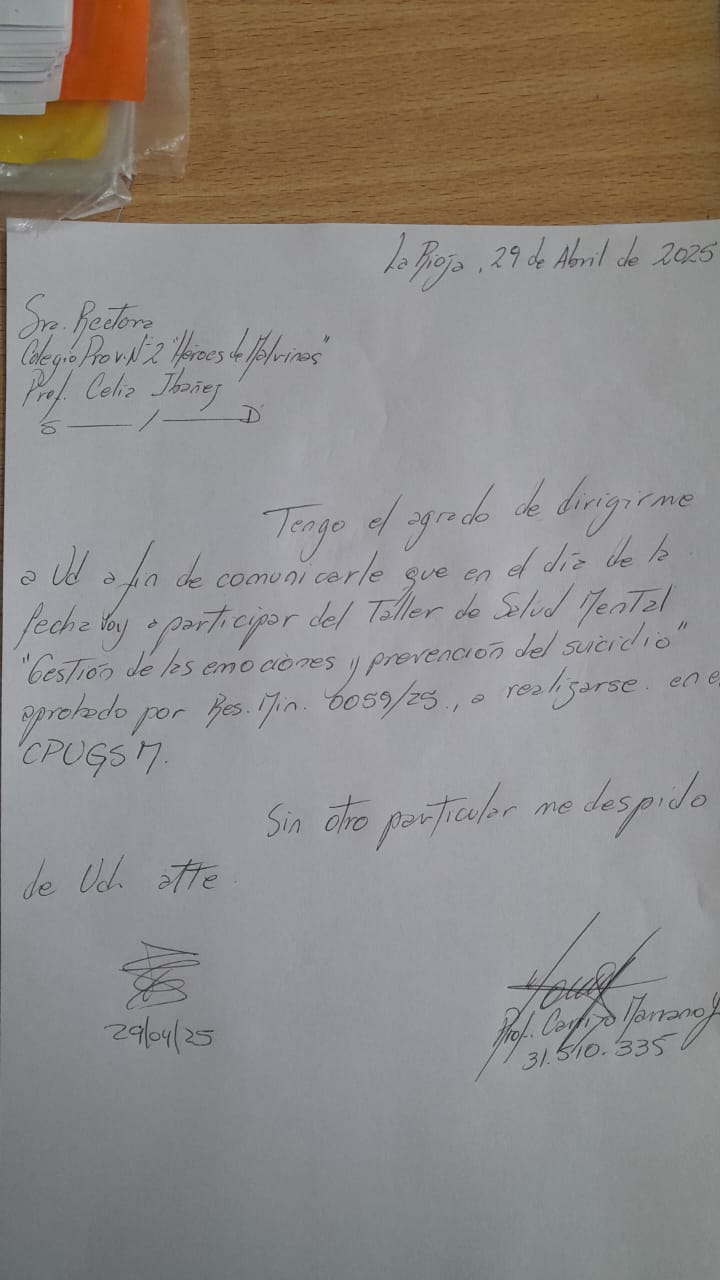 La Rioja, 29 de Abril de 2025
Sra. Rectora
Colegio Prov. N° 2 "Héroes de Malvinas"
Prof. Celia Ibañez
S ——— / ——— D
Tengo el agrado de dirigirme
a Ud a fin de comunicarle que en el día de la
fecha voy a participar del Taller de Salud Mental
"Gestión de las emociones y prevención del suicidio"
aprobado por Res. Min. 0059/25., a realizarse en e
CPUGSM.
Sin otro particular me despido
de Ud. atte.
29/04/25
Prof. Carrizo Marrano Y
31.510.335